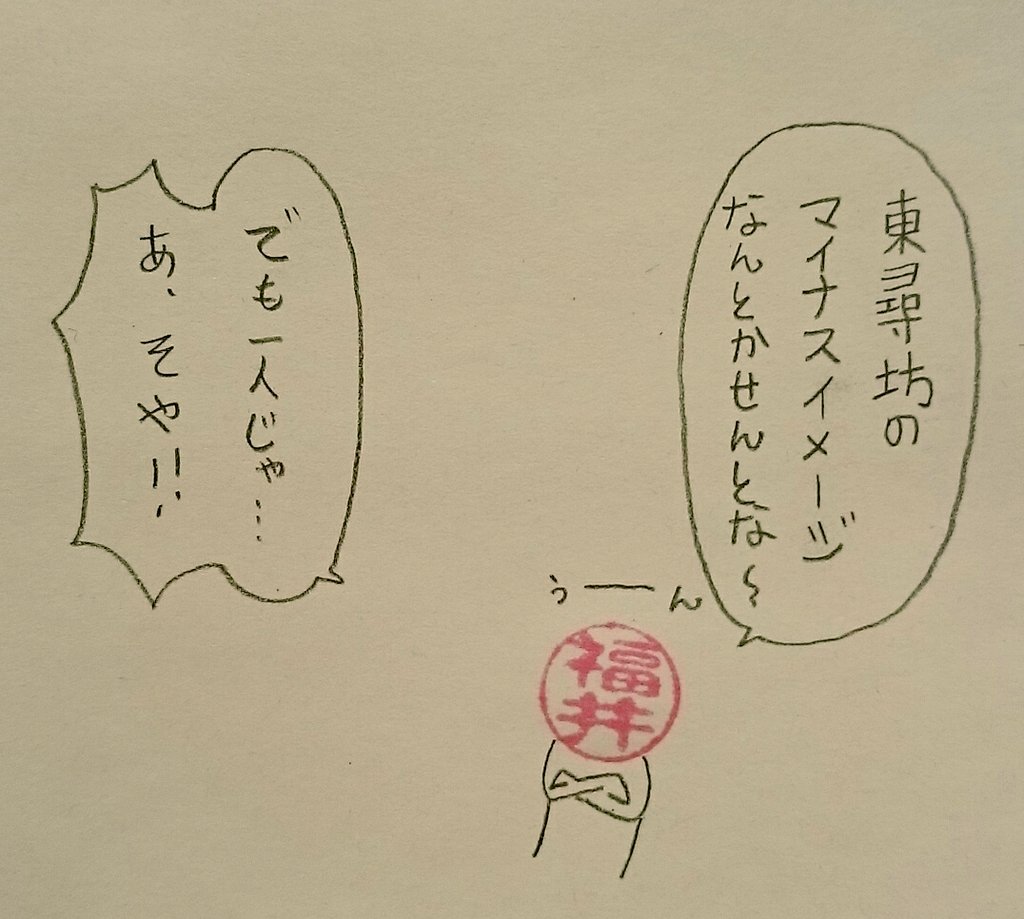 東尋坊の
マイナスイメージ
なんとかせんとな〜
うーん
福井
でも一人じゃ…
あ、そや!!